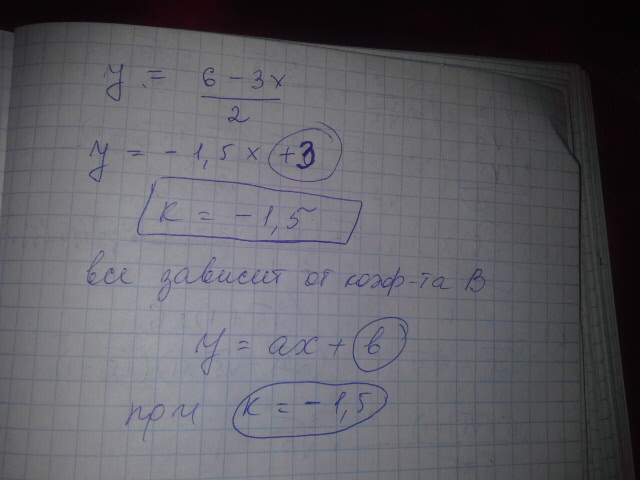 y = 6 - 3x / 2
y = - 1,5 x + 3
K = - 1,5
все зависит от коэф-та В
y = ax + в
при K = - 1,5